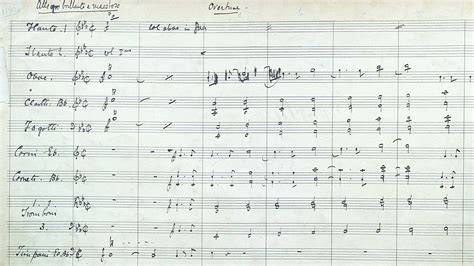 Allegro brillante e maestoso
Overture.
Flauto 1
col oboe in 8va
Flauto 2
col
Oboe
Clar{tti} Bb
Fagotti
Corni Eb
Cornets Bb
Tromboni
3
Timpani Eb